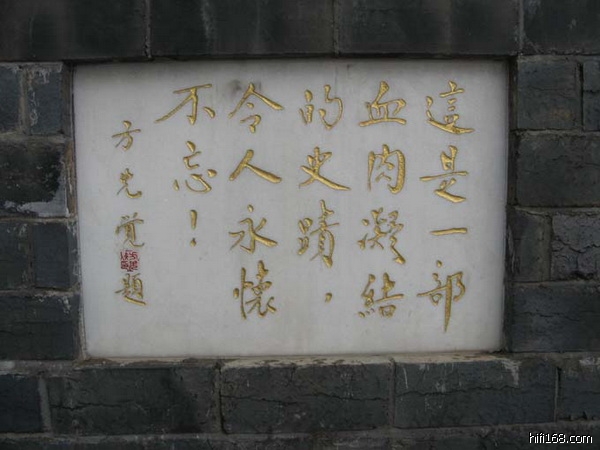 這是一部
血肉凝結
的史蹟，
令人永懷
不忘！
方先覺題
hifi168.com